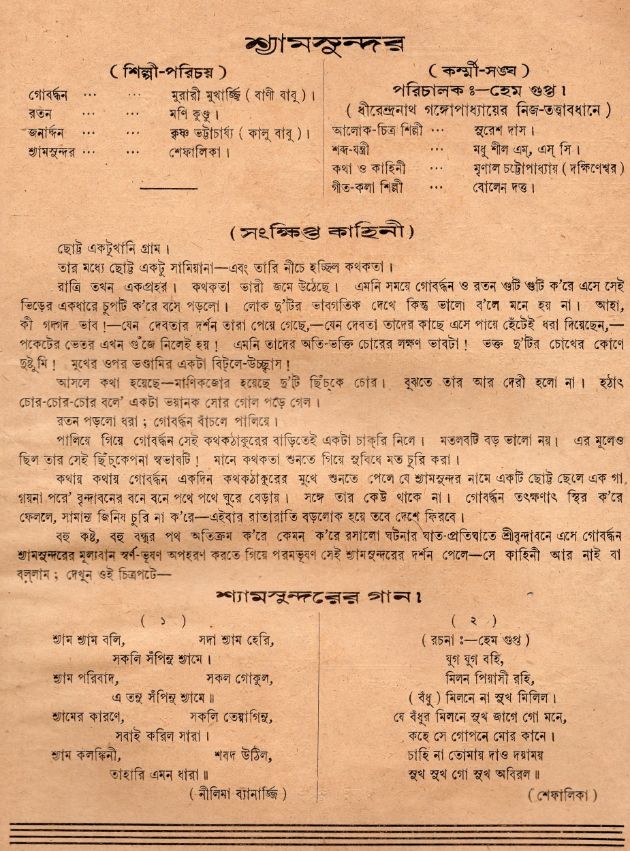 শ্যামসুন্দর
( শিল্পী-পরিচয় )
গোবর্দ্ধন ··· ··· মুরারী মুখার্জ্জি ( বাণী বাবু ) ।
রতন ··· ··· মণি কুণ্ডু ।
জনার্দ্দন ··· ··· কৃষ্ণ ভট্টাচার্য্য ( কালু বাবু ) ।
শ্যামসুন্দর ··· ··· শেফালিকা ।
( কর্ম্মী-সঙ্ঘ )
পরিচালক ঃ—হেম গুপ্ত ।
( ধীরেন্দ্রনাথ গঙ্গোপাধ্যায়ের নিজ-তত্ত্বাবধানে )
আলোক-চিত্র শিল্পী ··· সুরেশ দাস ।
শব্দ-যন্ত্রী ··· মধু শীল এম্, এস্ সি ।
কথা ও কাহিনী ··· মৃণাল চট্টোপাধ্যায় ( দক্ষিণেশ্বর )
গীত-কলা শিল্পী ··· বোলেন দত্ত ।
( সংক্ষিপ্ত কাহিনী )
ছোট্ট একটুখানি গ্রাম ।
তার মধ্যে ছোট্ট একটু সামিয়ানা—এবং তারি নীচে হচ্ছিল কথকতা ।
রাত্রি তখন একপ্রহর । কথকতা ভারী জমে উঠেছে । এমনি সময়ে গোবর্দ্ধন ও রতন গুটি গুটি ক'রে এসে সেই
ভিড়ের একধারে চুপটি ক'রে বসে পড়লো । লোক দু'টির ভাবগতিক দেখে কিন্তু ভালো ব'লে মনে হয় না । আহা,
কী গলদ ভাব !—যেন দেবতার দর্শন তারা পেয়ে গেছে,—যেন দেবতা তাদের কাছে এসে পায়ে হেঁটেই ধরা দিয়েছেন,—
পকেটের ভেতর এখন গুঁজে নিলেই হয় ! এমনি তাদের অতি-ভক্তি চোরের লক্ষণ ভাবটা ! ভক্ত দু'টির চোখের কোণে
দুষ্টুমি ! মুখের ওপর ভণ্ডামির একটা বিট্‌লে-উচ্ছ্বাস !
আসলে কথা হয়েছে—মাণিকজোর হয়েছে দু'টি ছিঁচ্‌কে চোর । বুঝতে তার আর দেরী হলো না । হঠাৎ
চোর-চোর-চোর বলে' একটা ভয়ানক সোর গোল পড়ে গেল ।
রতন পড়লো ধরা ; গোবর্দ্ধন বাঁচলে পালিয়ে ।
পালিয়ে গিয়ে গোবর্দ্ধন সেই কথকঠাকুরের বাড়িতেই একটা চাক্‌রি নিলে । মতলবটি বড় ভালো নয় । এর মূলেও
ছিল তার সেই ছিঁচ্‌কেপনা স্বভাবটি ! মানে কথকতা শুনতে গিয়ে সুবিধে মত চুরি করা ।
কথায় কথায় গোবর্দ্ধন একদিন কথকঠাকুরের মুখে শুনতে পেলে যে শ্যামসুন্দর নামে একটি ছোট্ট ছেলে এক গা
গয়না পরে' বৃন্দাবনের বনে বনে পথে পথে ঘুরে বেড়ায় । সঙ্গে তার কেউ থাকে না । গোবর্দ্ধন তৎক্ষণাৎ স্থির ক'রে
ফেললে, সামান্য জিনিষ চুরি না ক'রে—এইবার রাতারাতি বড়লোক হয়ে তবে দেশে ফিরবে ।
বহু কষ্ট, বহু বন্ধুর পথ অতিক্রম ক'রে কেমন ক'রে রসালো ঘটনার ঘাত-প্রতিঘাতে শ্রীবৃন্দাবনে এসে গোবর্দ্ধন
শ্যামসুন্দরের মূল্যবান স্বর্ণ-ভূষণ অপহরণ করতে গিয়ে পরমভূষণ সেই শ্যামসুন্দরের দর্শন পেলে—সে কাহিনী আর নাই বা
বল্‌লাম ; দেখুন ওই চিত্রপটে—
শ্যামসুন্দরের গান ।
( ১ )
শ্যাম শ্যাম বলি, সদা শ্যাম হেরি,
সকলি সঁপিনু শ্যামে ।
শ্যাম পরিবাদ, সকল গোকুল,
এ তনু সঁপিনু শ্যামে ॥
শ্যামের কারণে, সকলি তেয়াগিনু,
সবাই করিল সারা ।
শ্যাম কলঙ্কিনী, শবদ উঠিল,
তাহারি এমন ধারা ॥
( নীলিমা ব্যানার্জ্জি )
( ২ )
( রচনা ঃ—হেম গুপ্ত )
যুগ যুগ বহি,
মিলন পিয়াসী রহি,
( বঁধু ) মিলনে না সুখ মিলিল ।
যে বঁধুর মিলনে সুখ জাগে গো মনে,
কহে সে গোপনে মোর কানে ।
চাহি না তোমায় দাও দয়াময়
সুখ সুখ গো সুখ অবিরল ॥
( শেফালিকা )